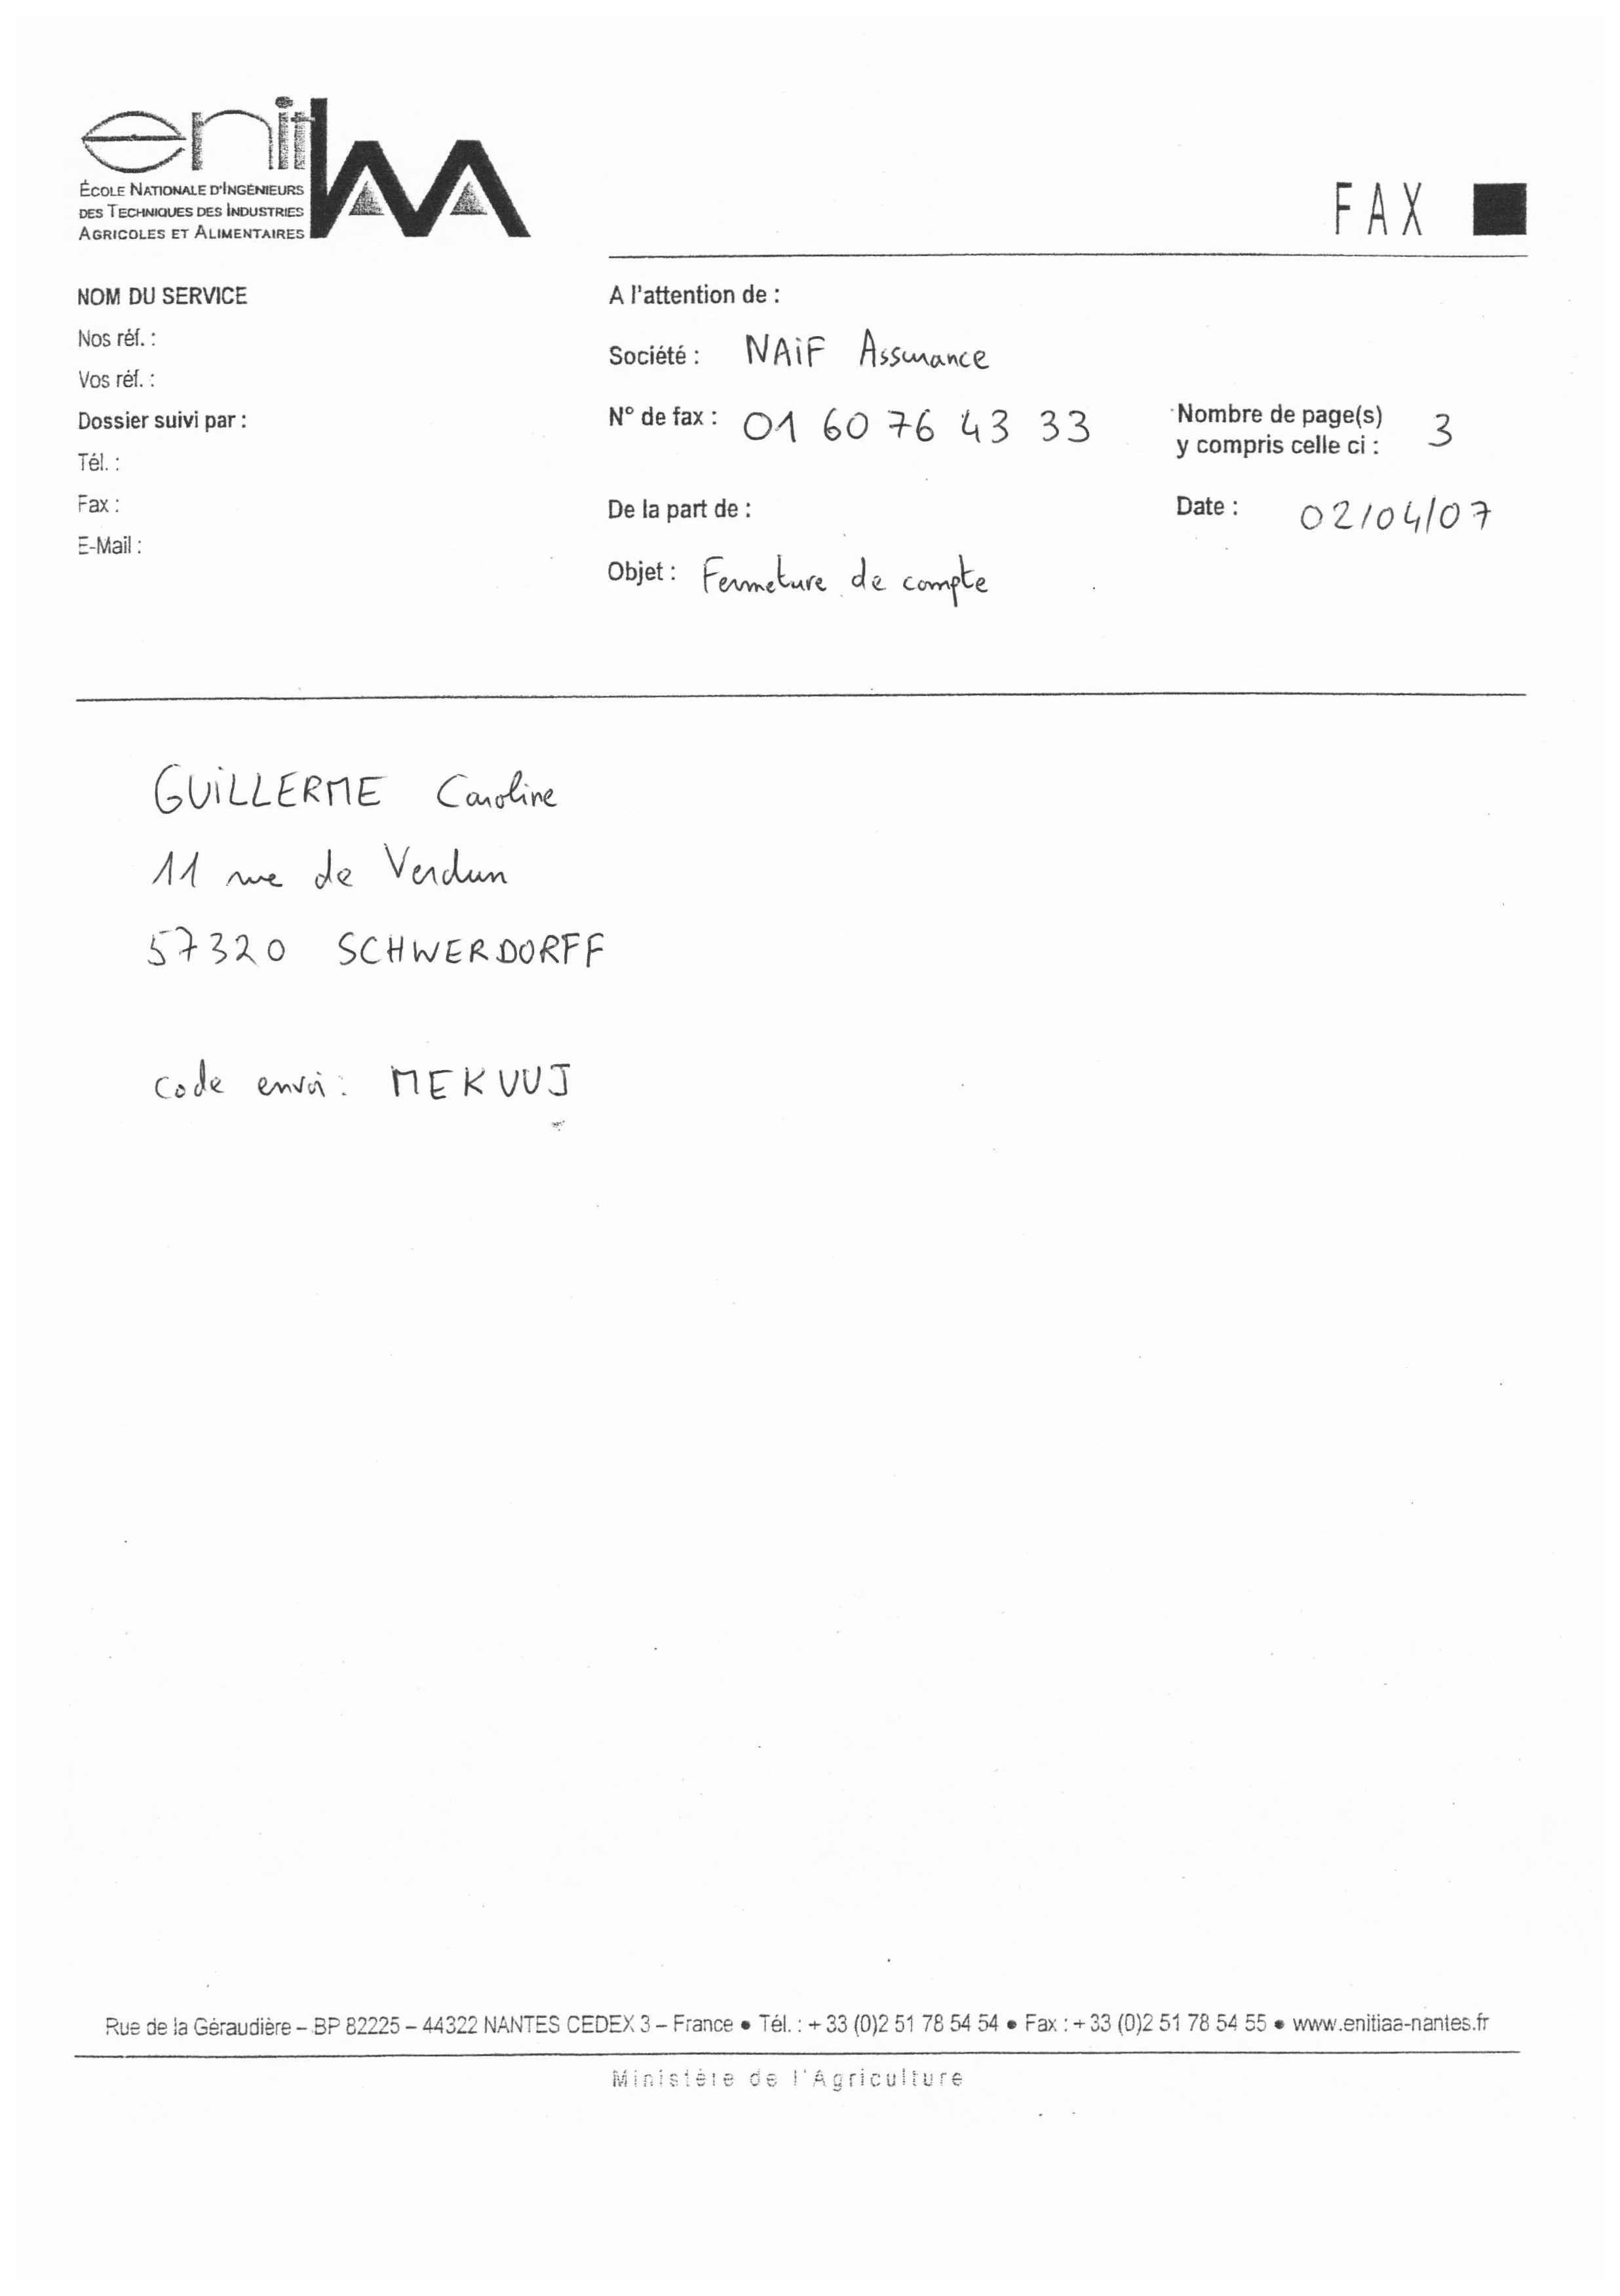 enitIAA
ÉCOLE NATIONALE D'INGÉNIEURS
DES TECHNIQUES DES INDUSTRIES
AGRICOLES ET ALIMENTAIRES
FAX
NOM DU SERVICE
Nos réf. :
Vos réf. :
Dossier suivi par :
Tél. :
Fax :
E-Mail :
A l'attention de :
Société : NAiF Assurance
N° de fax : 01 60 76 43 33
Nombre de page(s)
y compris celle ci : 3
De la part de :
Date : 02/04/07
Objet : Fermeture de compte
GUiLLERME Caroline
11 rue de Verdun
57320 SCHWERDORFF
code envoi : MEKVUJ
Rue de la Géraudière – BP 82225 – 44322 NANTES CEDEX 3 – France • Tél. : + 33 (0)2 51 78 54 54 • Fax : + 33 (0)2 51 78 54 55 • www.enitiaa-nantes.fr
Ministère de l'Agriculture